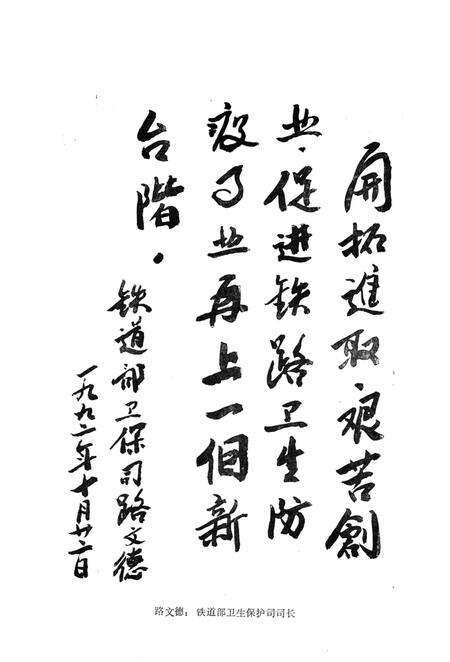 開拓進取、艰苦創
业、促进铁路卫生防
疫事业再上一個新
台階。
铁道部卫保司路文德
一九九二年十月廿二日
路文德：铁道部卫生保护司司长